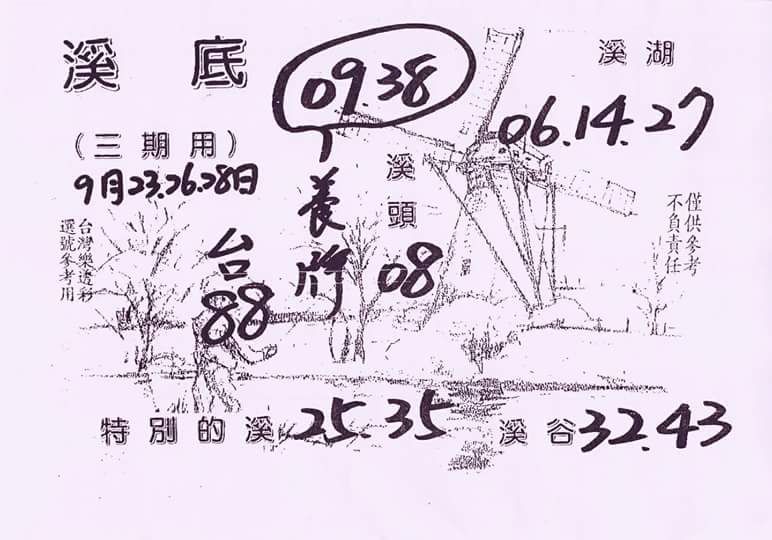 溪底
09.38
溪湖
06.14.27
(三期用)
9月23.26.28日
養牌
溪頭
08
僅供參考
不負責任
台灣樂透彩
選號參考用
台
88
特別的溪 25.35
溪谷 32.43